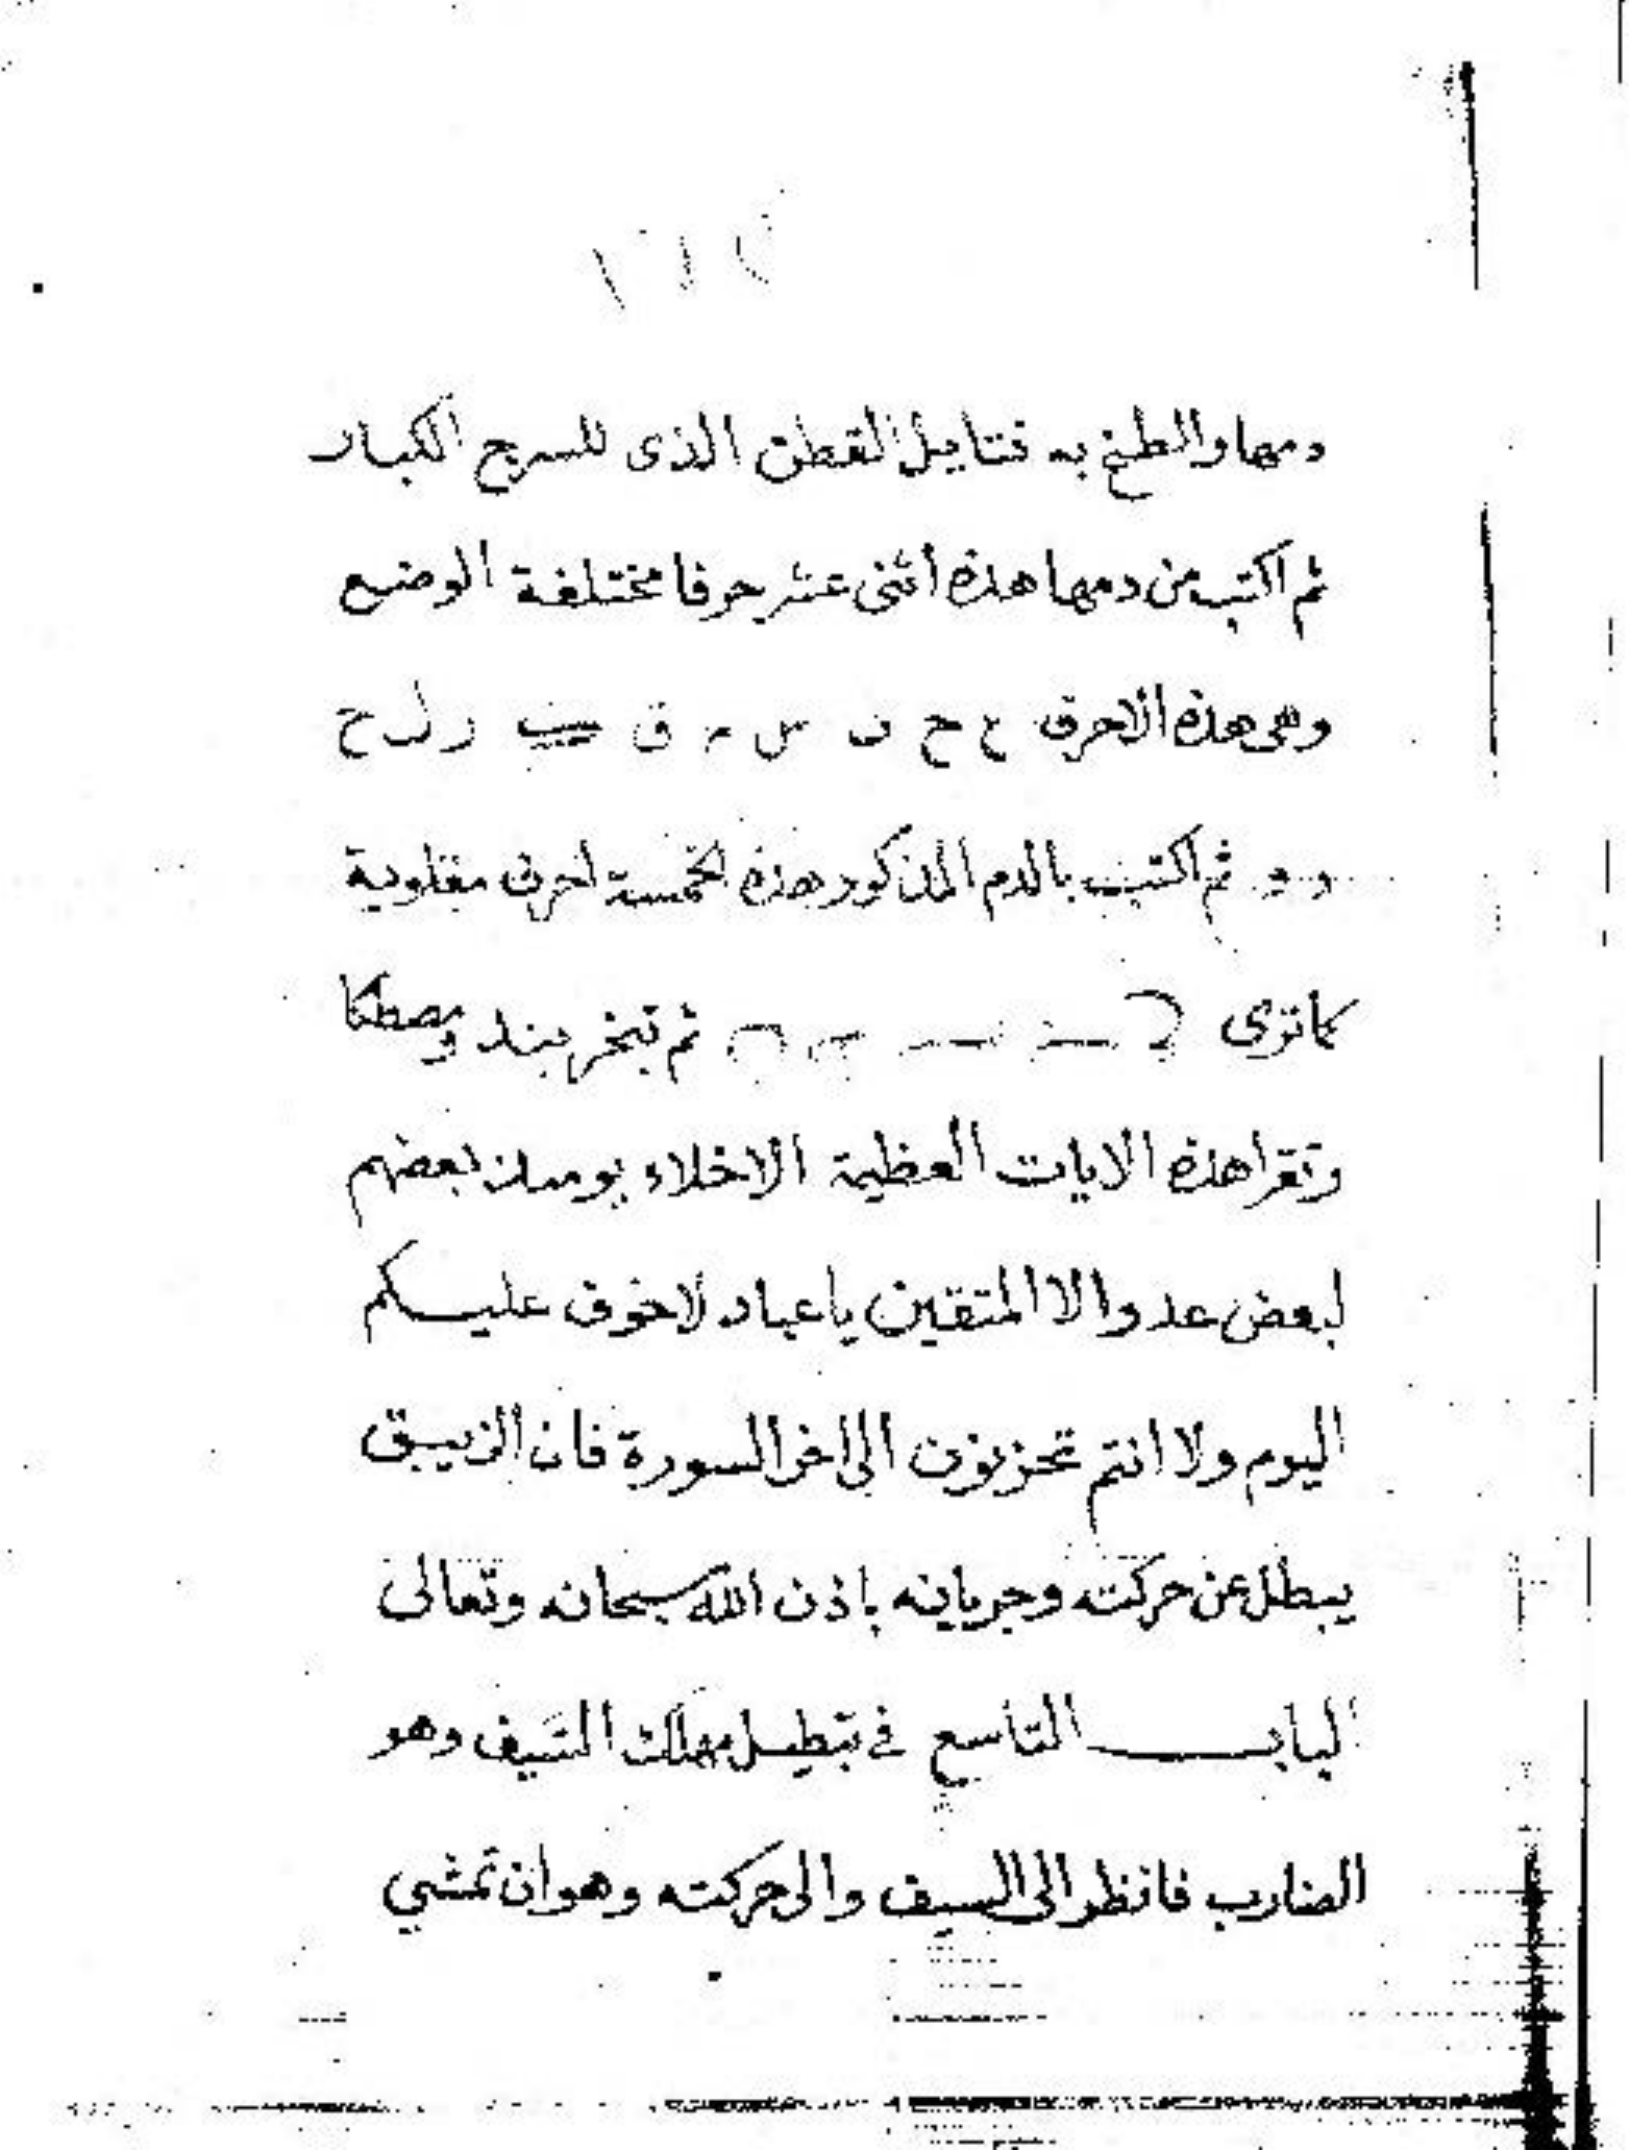 دمها والطخ به فتايل القطن الذى للسرج الكبار
ثم اكتب من دمها هذه اثنى عشر حرفا مختلفة الوضع
وهى هذه الاحرف ع ح ں س ر ق ب ر ل ح
د و ثم اكتب بالدم المذكور هذه الخمسة احرف مقلوبة
كما ترى ثم تبخر بند ومصطكا
وتقرا هذه الايات العظيمة الاخلاء يومئذ بعضهم
لبعض عدوا الا المتقين يا عباد لا خوف عليكم
اليوم ولا انتم تحزنون الى اخر السورة فان الزيبق
يبطل عن حركته وجريانه باذن الله سبحانه وتعالى
الباب التاسع فى تبطيل مهلك السيف وهو
الضارب فانظر الى السيف والى حركته وهو ان تمشي